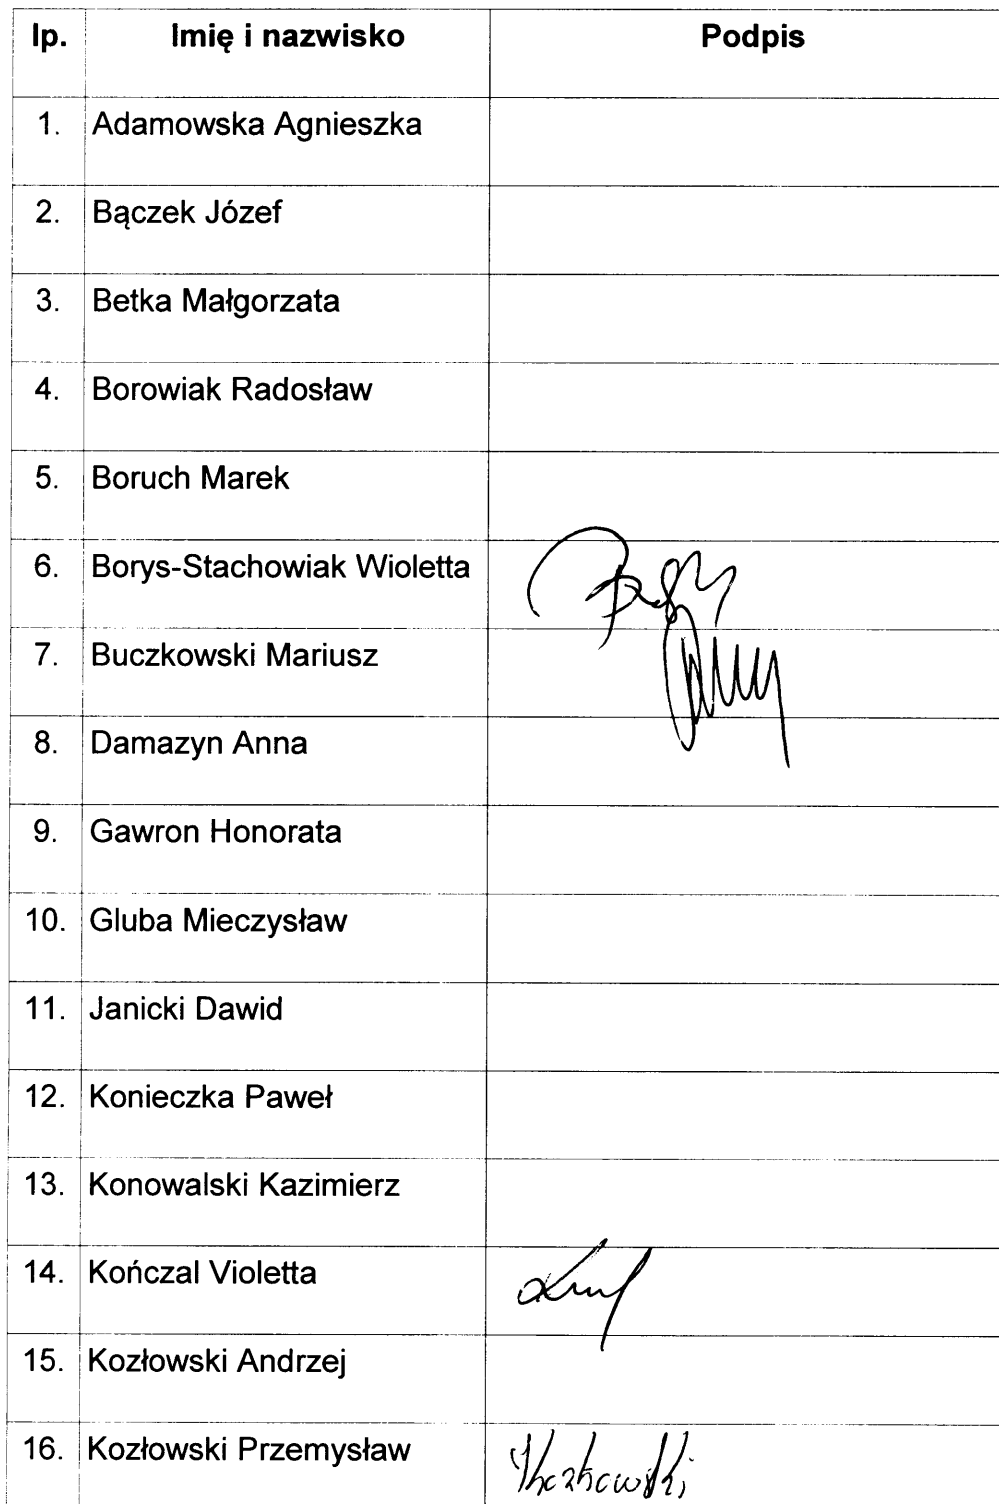 lp. Imię i nazwisko Podpis
1. Adamowska Agnieszka
2. Bączek Józef
3. Betka Małgorzata
4. Borowiak Radosław
5. Boruch Marek
6. Borys-Stachowiak Wioletta
7. Buczkowski Mariusz
8. Damazyn Anna
9. Gawron Honorata
10. Gluba Mieczysław
11. Janicki Dawid
12. Konieczka Paweł
13. Konowalski Kazimierz
14. Kończal Violetta
15. Kozłowski Andrzej
16. Kozłowski Przemysław